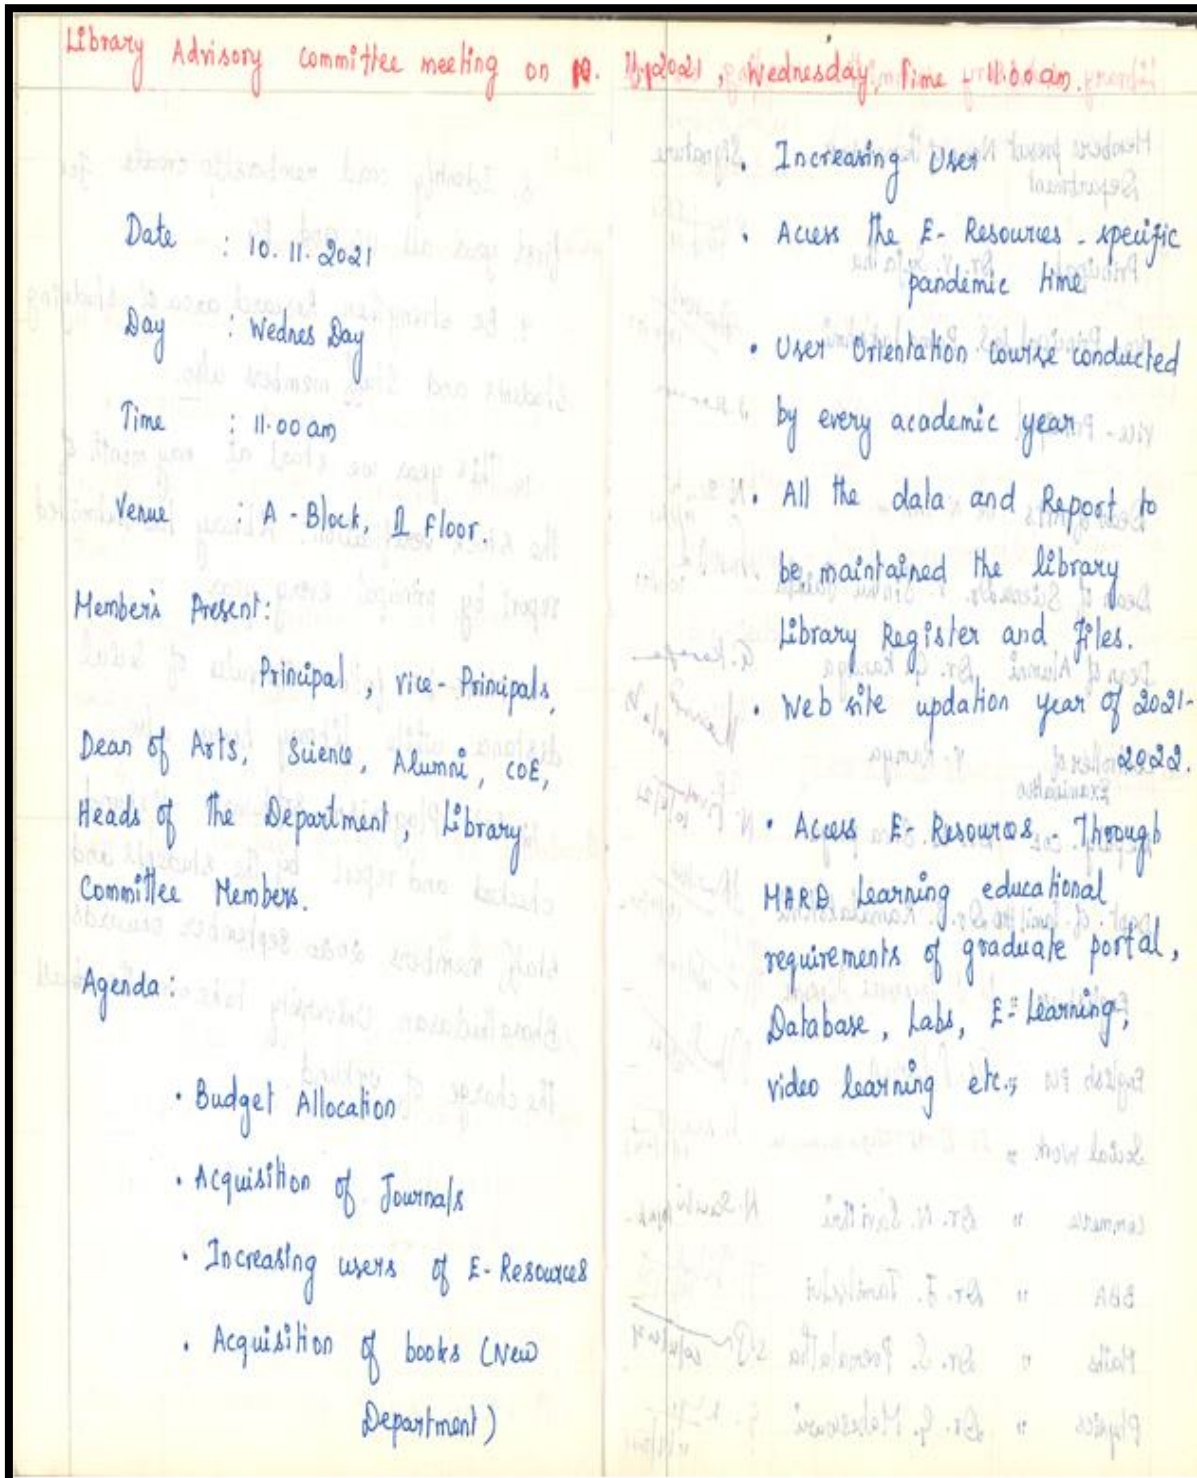 Library Advisory committee meeting on 10. 11. 2021, Wednesday, Time 11.00 am.
Date : 10.11.2021
Day : Wednes Day
Time : 11.00 am
Venue : A - Block, I Floor.
Member's Present:
Principal, vice-Principals,
Dean of Arts, Science, Alumni, COE,
Heads of the Department, Library
Committee Members.
Agenda:
• Budget Allocation
• Acquisition of Journals
• Increasing users of E-Resources
• Acquisition of books (New
Department)
• Increasing User
• Access the E- Resources - specific
pandemic time
• User Orientation course conducted
by every academic year
• All the data and Report to
be maintained the library
Library Register and Files.
• Web site updation year of 2021-
2022.
• Access E- Resources - Through
learning educational
requirements of graduate portal,
Database, Labs, E-Learning,
video learning etc.,